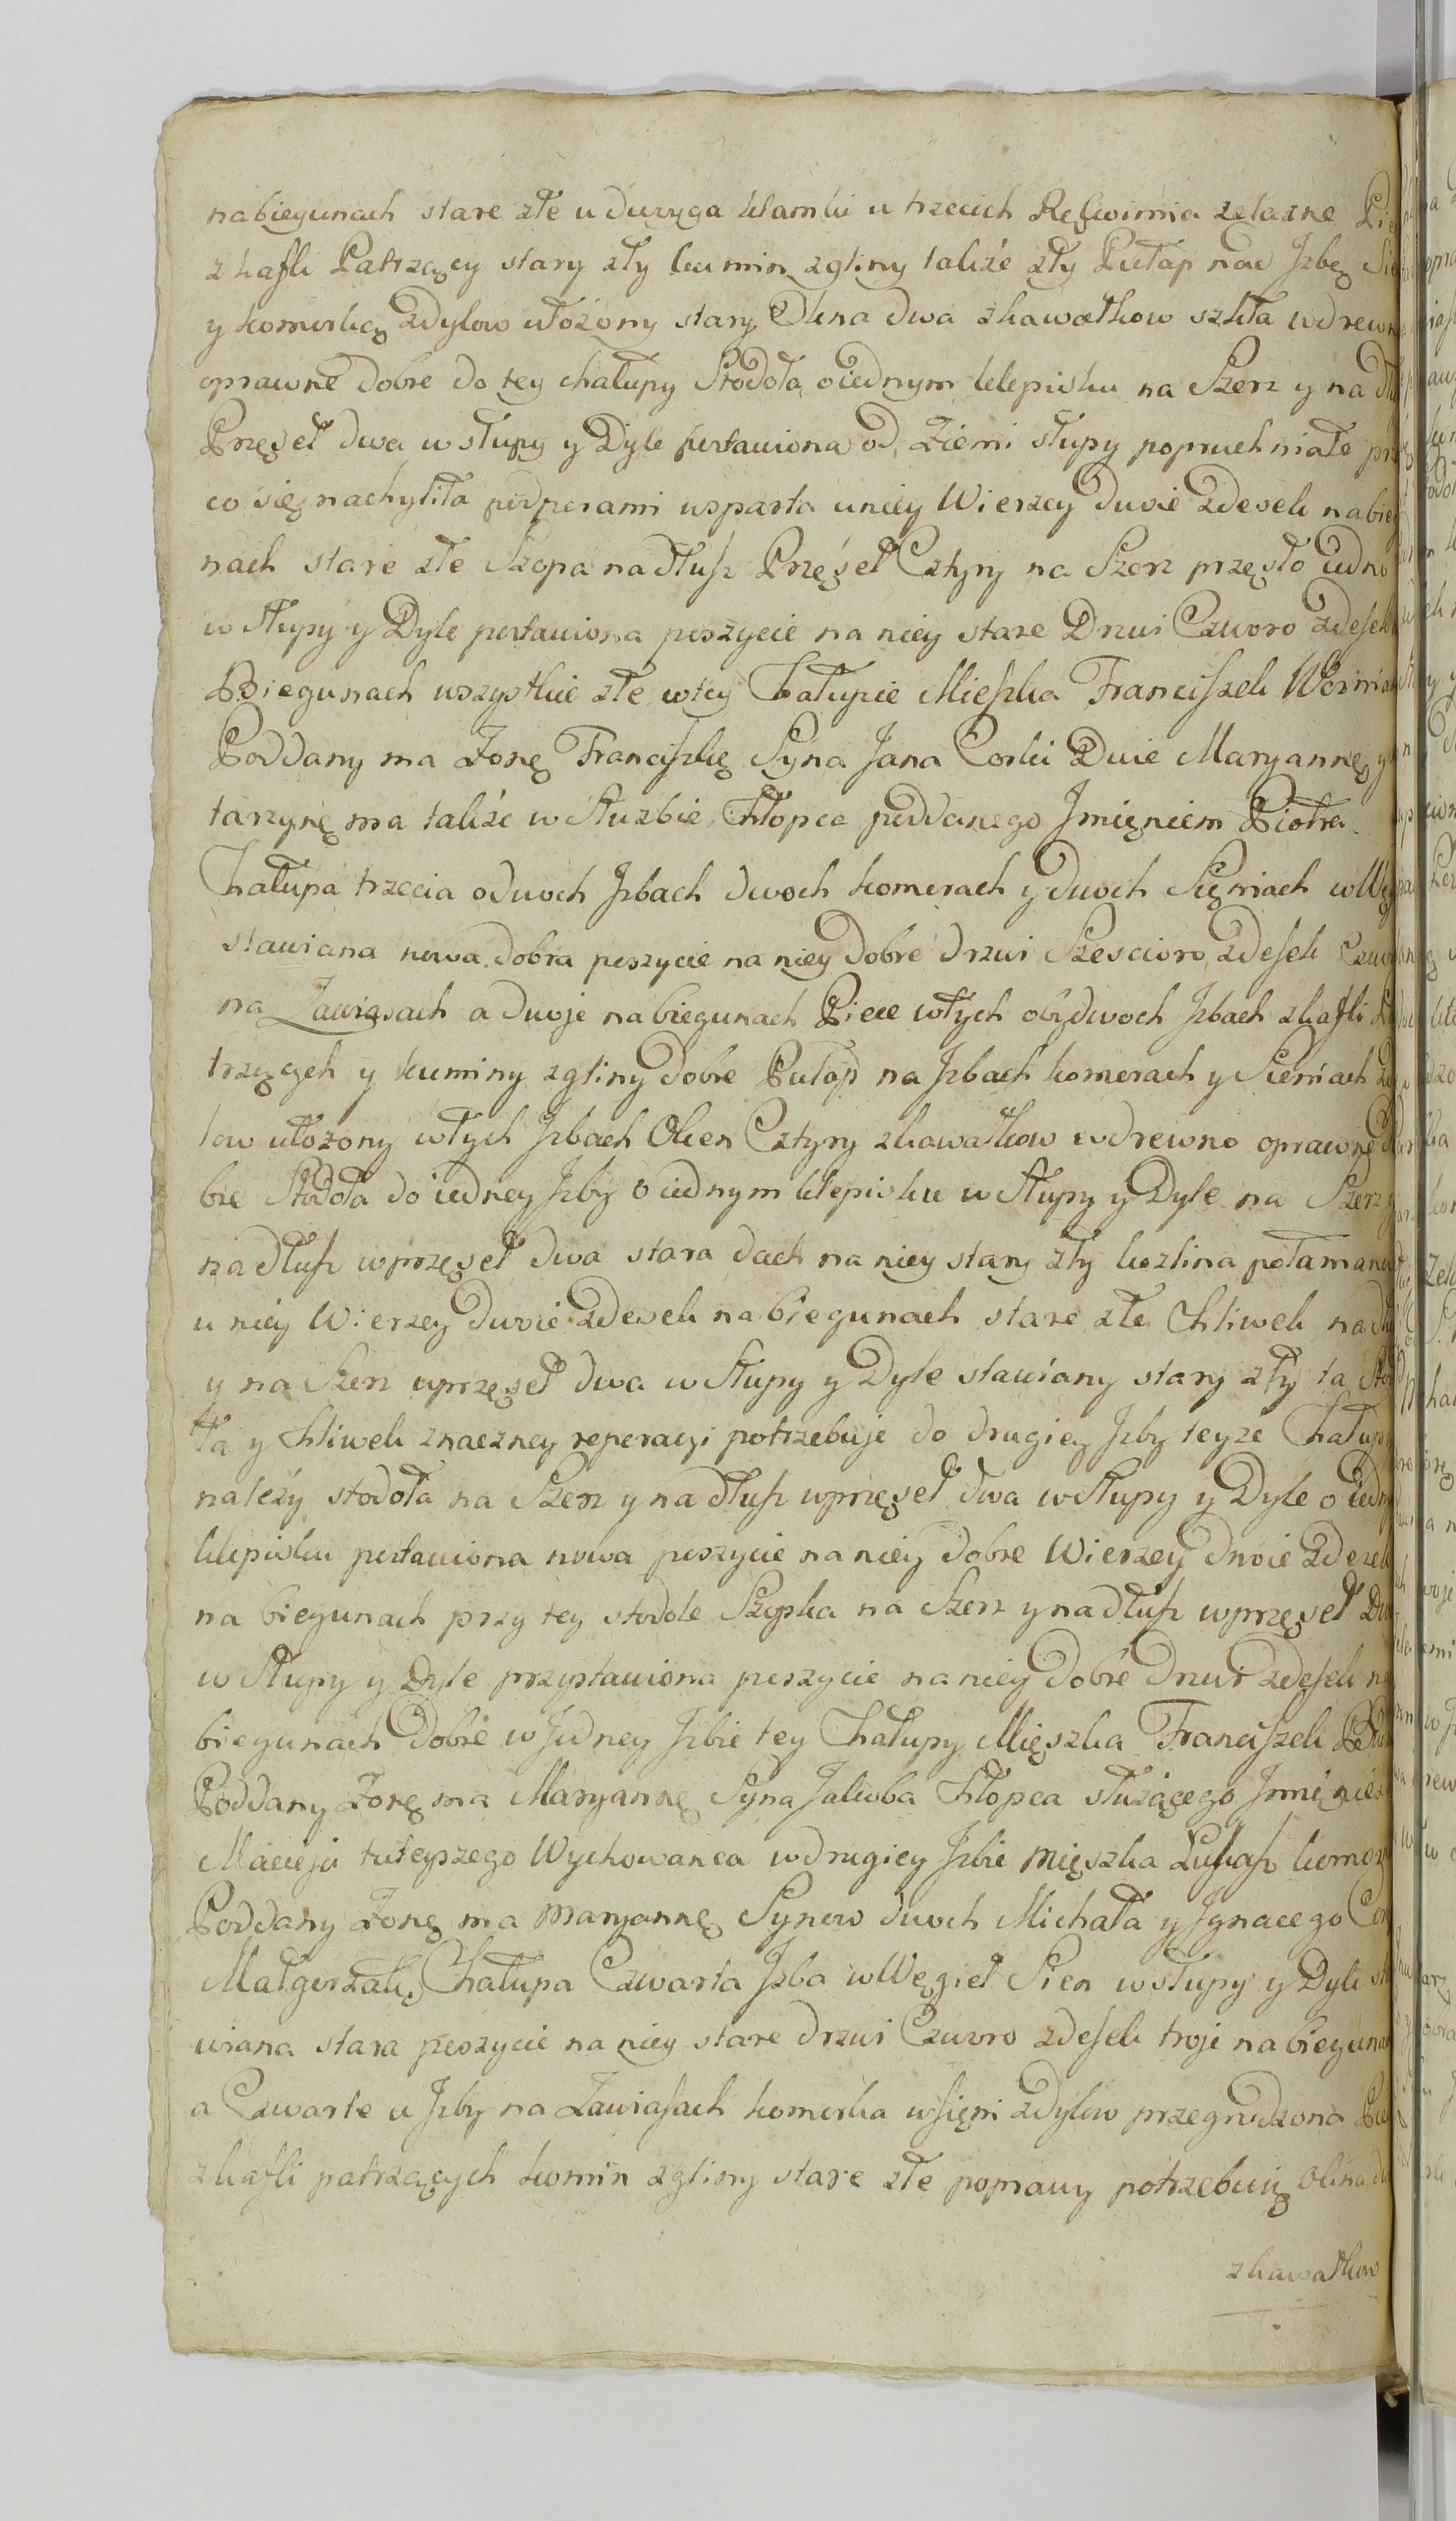 na biegunach stare złe u dwuyga klamki u trzecich Rękwimia zelazne Pie
z kafli Patrzący stary zły kumin z gliny także zły Pułap nad Jzbę Sie
y komurkę z dylow ułożony stary Okna dwa z kawałkow szkła w drewn
oprawne dobre do tey chałupy Stodoła o iednym klepisku na Szerz y na dłu
Przęseł dwa w słupy y Dyle postawiona od Ziemi słupy popruchniałe prz
co się nachyliła podporami wsparta u niey Wierzey dwie z desek na bieg
nach stare złe Szopa na dłusz Przęseł Cztyry na Szerz przęsło iedno
w słupy y Dyle postawiona poszycie na niey stare Drzwi Czworo z desek
Biegunach wszystkie złe w tey Chałupie Mieszka Franciszek Woznia
Poddany ma Zonę Franciszkę Syna Jana Corki Dwie Maryannę y
tarzynę ma także w służbie Chłopca poddanego Jmięniem Piotra
Chałupa trzecia o dwoch Jzbach dwoch komorach y dwoch Sięniach w Wę
stawiana nowa dobra poszycie na niey dobre drzwi Szescioro z desek Czwo
na Zawiasach a dwoje na biegunach Piece w tych obydwoch Jzbach z kafli Pa
trzących y kuminy z gliny dobre Pułap na Jzbach komorach y Sieniach z dy
low ułożony w tych Jzbach Okien Cztyry z kawałkow w drewno oprawne do
bre Stodoła do iedney Jzby o iednym klepisku w słupy y Dyle na Szerz y
na dłusz w przęseł dwa stara dach na niey stary zły kozlina połamana
u niey Wierzey dwie z desek na biegunach stare złe Chliwek na dłu
y na Szerz w przęseł dwa w słupy y Dyle stawiany stary zły ta Sto
ła y Chliwek znaczney reperacyi potrzebuje do drugiey Jzby teyze Chałupy
należy stodoła na Szerz y na dłusz w przęseł dwa w słupy y Dyle o iedny
klepisku postawiona nowa poszycie na niey dobre Wierzey dwie z desek
na biegunach przy tey stodole Szopka na Szerz y na dłusz w przęseł Dwa
w słupy y Dyle przystawiona poszycie na niey dobre Drzwi z desek na
biegunach dobre w Jedney Jzbie tey Chałupy Mięszka Franciszek
Poddany Zonę ma Maryannę Syna Jakuba Chłopca słuzącego Jmięniem
Macieja tuteyszego Wychowanca w drugiey Jzbie mięszka Łukasz komor
Poddany Zonę ma Maryannę Synow dwoch Michała y Jgnacego Cor
Małgorzatę Chałupa Czwarta Jzba w Węgieł Sien w słupy y Dyle sta
wiana stara poszycie na niey stare drzwi Czworo z desek troje na biegunach
a Czwarte u Jzby na Zawiasach komorka w sięni z dylow przegrodzona Piec
z kafli patrzących komin z gliny stare złe poprawy potrzebuią Okna dwa
z kawałkow